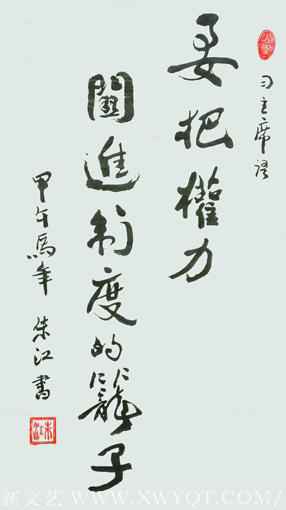 习主席语
要把權力
關進制度的籠子
甲午馬年 朱江書
朱江
新文艺 WWW.XWYQT.COM/